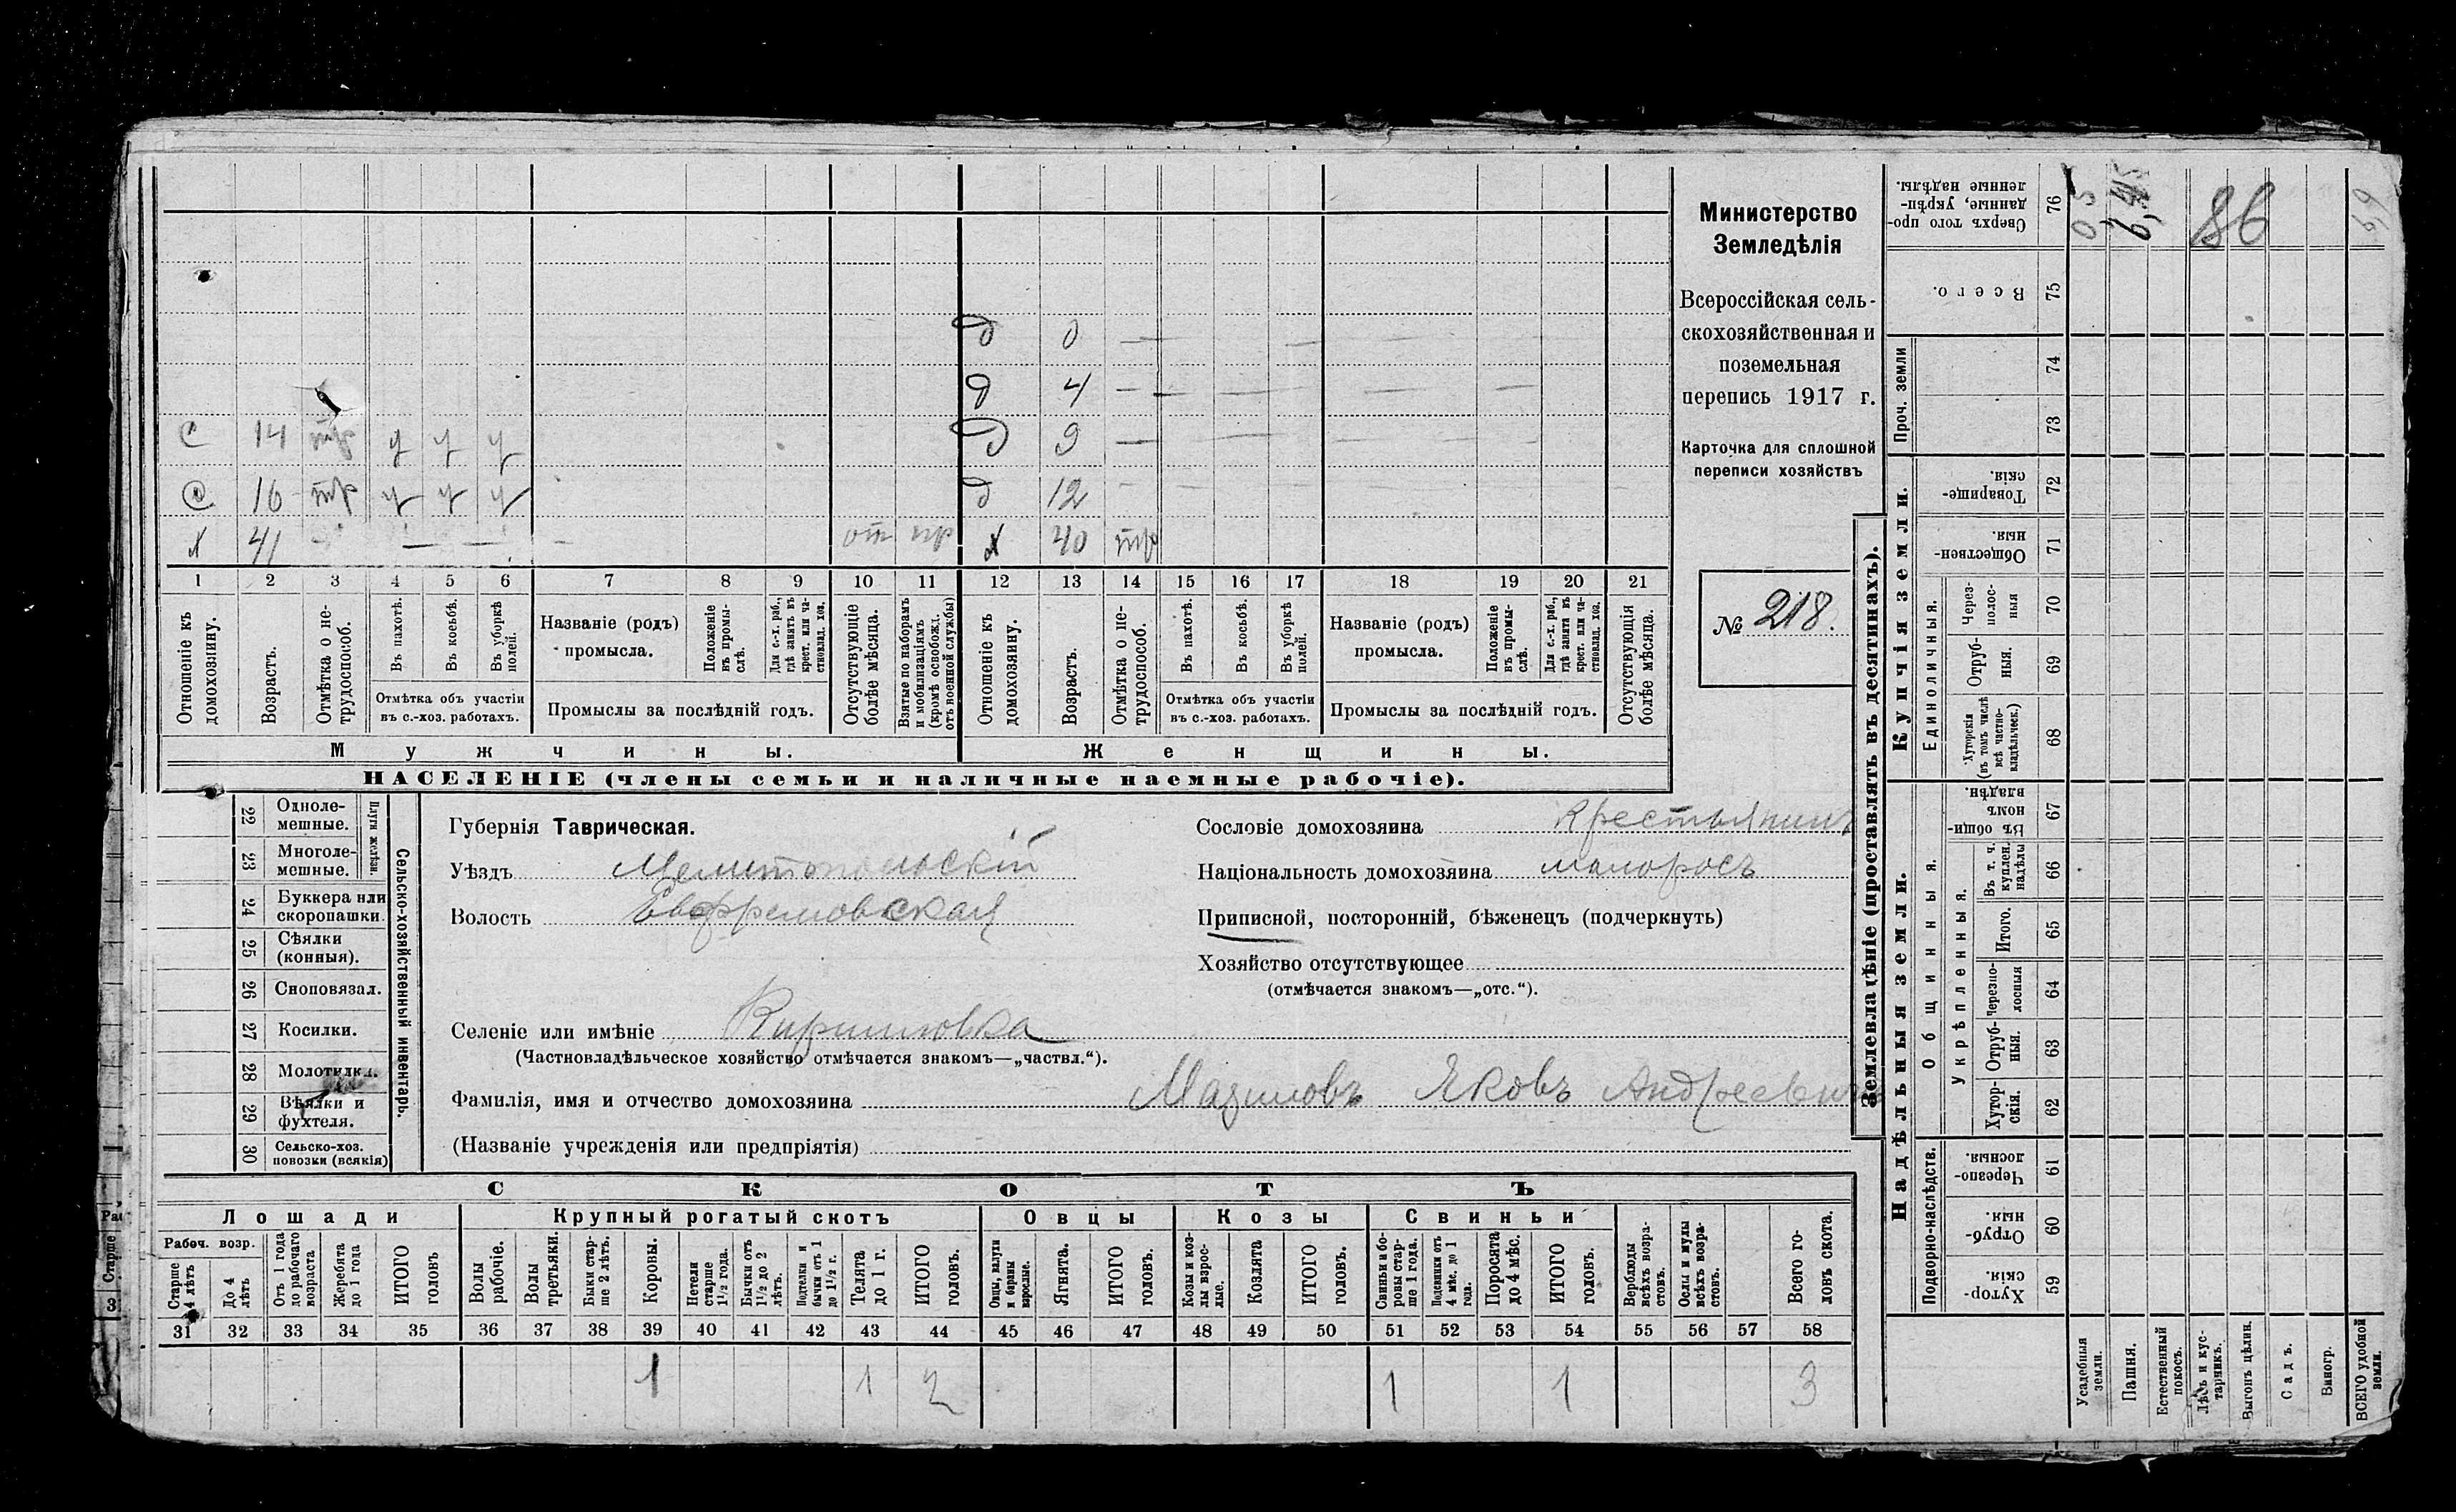 Министерство
Земледѣлія
Всероссійская сель-
скохозяйственная и
поземельная
перепись 1917 г.
Карточка для сплошной
переписи хозяйствъ
№ 218.
д 0 — — — — — —
д 4 — — — — — —
с 14 тр у у у д 9 — — — —
с 16 тр у у у д 12 — — — — —
х 41 — — — — от пр х 40 тр
1 2 3 4 5 6 7 8 9 10 11 12 13 14 15 16 17 18 19 20 21
Отношеніе къ домохозяину.
Возрастъ.
Отмѣтка о не-трудоспособ.
Въ пахотѣ.
Въ косьбѣ.
Въ уборкѣ полей.
Отмѣтка объ участіи
въ с.-хоз. работахъ.
Названіе (родъ)
промысла.
Положеніе въ промы-слѣ.
Для с.-х. раб., гдѣ занятъ въ крест. или ча-стновлад. хоз.
Промыслы за послѣдній годъ.
Отсутствующіе болѣе мѣсяца.
Взятые по наборамъ и мобилизаціямъ (кромѣ освобожд. отъ военной службы)
Отношеніе къ домохозяину.
Возрастъ.
Отмѣтка о не-трудоспособ.
Въ пахотѣ.
Въ косьбѣ.
Въ уборкѣ полей.
Отмѣтка объ участіи
въ с.-хоз. работахъ.
Названіе (родъ)
промысла.
Положеніе въ промы-слѣ.
Для с.-х. раб., гдѣ занята въ крест. или ча-стновлад. хоз.
Промыслы за послѣдній годъ.
Отсутствующія болѣе мѣсяца.
Мужчины.
Женщины.
НАСЕЛЕНІЕ (члены семьи и наличные наемные рабочіе).
22 Одноле-мешные.
23 Многоле-мешные.
Плуги желѣзн.
24 Буккера или скоропашки.
25 Сѣялки (конныя).
26 Сноповязал.
27 Косилки.
28 Молотилки.
29 Вѣялки и фухтеля.
30 Сельско-хоз. повозки (всякія)
Сельско-хозяйственный инвентарь.
Губернія Таврическая.
Уѣздъ Мелитопольскій
Волость Ефремовская
Селеніе или имѣніе Кирилловка
(Частновладѣльческое хозяйство отмѣчается знакомъ—„частвл.“).
Фамилія, имя и отчество домохозяина Мазиловъ Яковъ Андреевичъ
(Названіе учрежденія или предпріятія)
Сословіе домохозяина крестьянинъ
Національность домохозяина малоросъ
Приписной, посторонній, бѣженецъ (подчеркнуть)
Хозяйство отсутствующее
(отмѣчается знакомъ—„отс.“).
СКОТЪ
Лошади
Крупный рогатый скотъ
Овцы
Козы
Свиньи
Рабоч. возр.
Старше 4 лѣтъ
До 4 лѣтъ
Отъ 1 года до рабочаго возраста
Жеребята до 1 года
ИТОГО головъ
Волы рабочіе.
Волы третьяки.
Быки стар-ше 2 лѣтъ.
Коровы.
Нетели старше 1½ года.
Бычки отъ 1½ до 2 лѣтъ.
Подтелки и бычки отъ 1 до 1½ г.
Телята до 1 г.
ИТОГО головъ.
Овцы, валухи и бараны взрослые.
Ягнята.
ИТОГО головъ.
Козы и коз-лы взрос-лые.
Козлята
ИТОГО головъ.
Свиньи и бо-ровы стар-ше 1 года.
Подсвинки отъ 4 мѣс. до 1 года.
Поросята до 4 мѣс.
ИТОГО головъ.
Верблюды всѣхъ возра-стовъ.
Ослы и мулы всѣхъ возра-стовъ.
Всего го-ловъ скота.
31 32 33 34 35 36 37 38 39 40 41 42 43 44 45 46 47 48 49 50 51 52 53 54 55 56 57 58
1 1 2 1 1 3
Землевладѣніе (проставлять въ десятинахъ).
Надѣльныя земли.
Купчія земли.
Проч. земли
Сверхъ того про-данные, укрѣп-ленные надѣлы. 76 05 86 6,9
Всего. 75
74
73
Товарище-скія. 72
Обществен-ныя. 71
Единоличныя.
Через-полос-ныя 70
Отруб-ныя. 69
Хуторскія (въ томъ числѣ всѣ частно-владѣльческ.) 68
Общинныя.
Въ общи-номъ владѣн. 67
Укрѣпленныя.
Въ т. ч. куплен. надѣлы 66
Итого. 65
Черезпо-лосныя 64
Отруб-ныя. 63
Хутор-скія. 62
Подворно-наслѣдств.
Черезпо-лосныя 61
Отруб-ныя. 60
Хутор-скія 59
Усадебныя земли.
Пашня.
Естественный покосъ.
Лѣсъ и кус-тарникъ.
Выгонъ цѣлин.
Садъ.
Виногр.
ВСЕГО удобной земли.